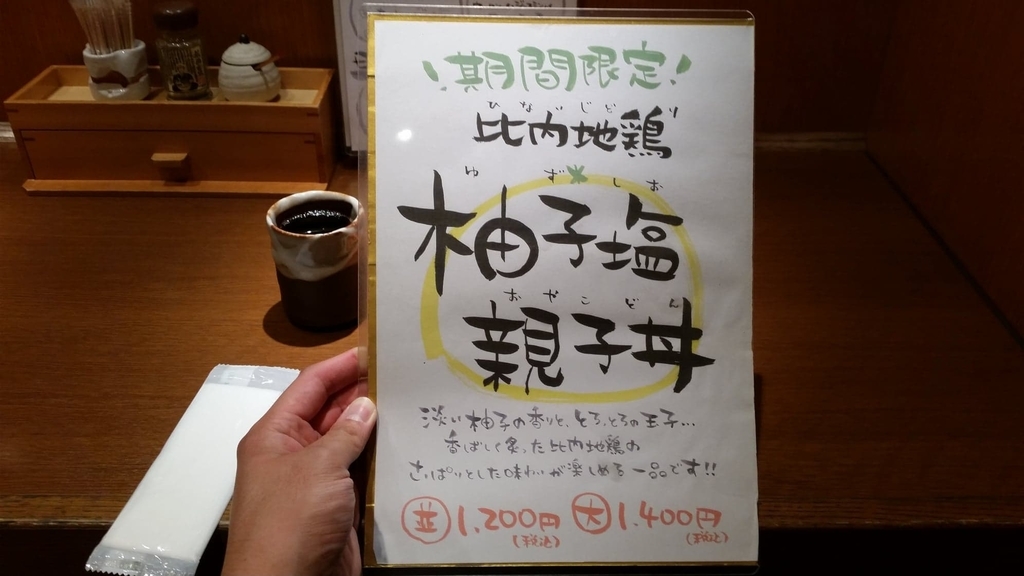 ！期間限定！
ひないじどり
比内地鶏
ゆずしお
柚子塩
おやこどん
親子丼
淡い柚子の香りと、とろっとろの玉子…
香ばしく炙った比内地鶏の
さっぱりとした味わいが楽しめる一品です!!
並 1,200円 大 1,400円
(税込) (税込)